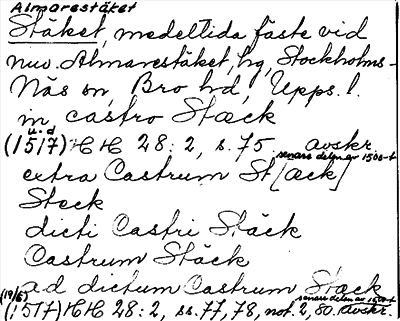 Almarestäket
Stäket, medeltida fäste vid
nuv. Almarestäket, hg, Stockholms-
Näs sn, Bro hd, Upps. l.
in castro Stæck
u.d
(1517) HH 28:2, s. 75 avskr.
senare delen av 1500-t
extra Castrum St[æck]
Steck
dicti Castri Stäck
Castrum Stäck
ad dictum Castrum Stæck
(19/5) senare delen av 1500-t
(1517) HH 28:2, ss. 77, 78, not. 2, 80. avskr.